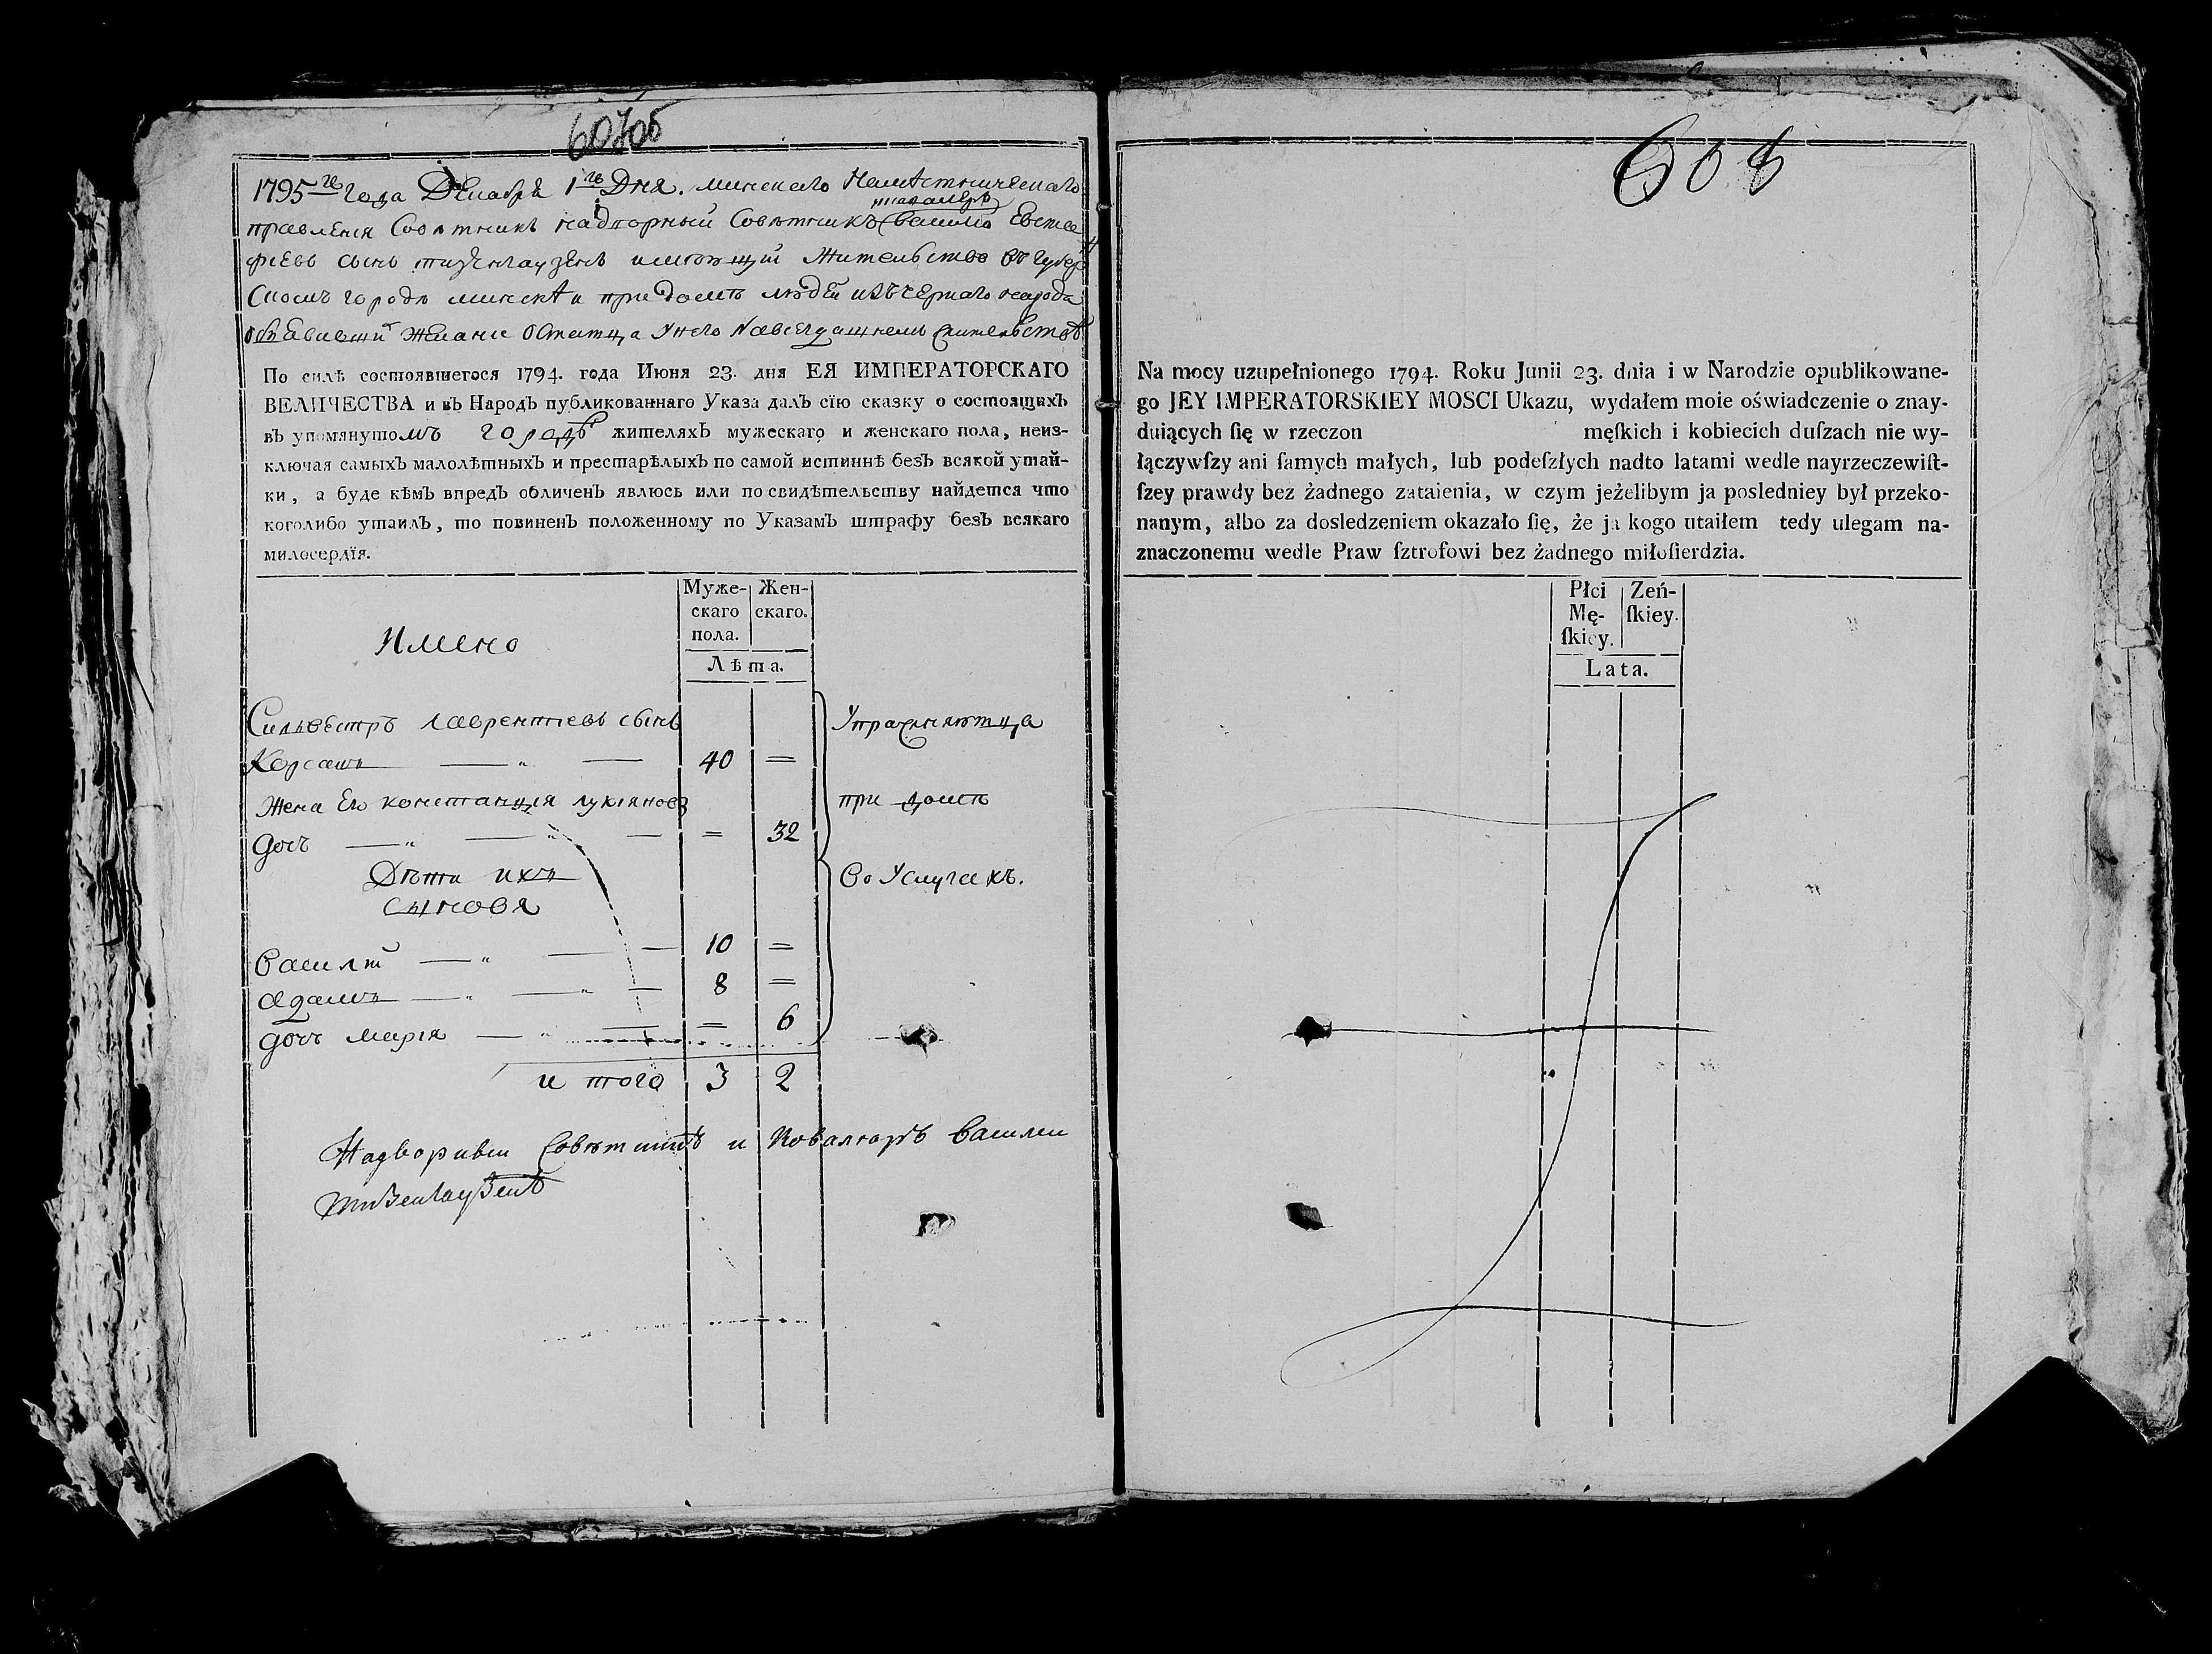 607об
1795го года Декабря 1го Дня. минскаго Наместническаго
икавалеръ
правления Советникъ надворный Советникъ Василий Евста
фиевъ сынъ тизенгаузенъ имеющий Жительство въ губерн
Скомъ городе минске и придоме людей изъчернаго народа
объявивший Желание Остатца Унего Навсегдашнемъ Жительстве
По силѣ состоявшегося 1794. года Июня 23. дня ЕЯ ИМПЕРАТОРСКАГО
ВЕЛИЧЕСТВА и въ Народъ публикованнаго Указа далъ сїю сказку о состоящихъ
въ упомянутомъ городѣ жителяхъ мужескаго и женскаго пола, неиз-
ключая самыхъ малолѣтныхъ и престарѣлыхъ по самой истиннѣ безъ всякой утай-
ки, а буде кѣмъ впредъ обличенъ явлюсь или по свидѣтельству найдется что
коголибо утаилъ, то повиненъ положенному по Указамъ штрафу безъ всякаго
милосердїя.
Муже-
скаго
пола.
Жен-
скаго.
Имено
Лѣта.
Сильвестръ лаврентиевъ сынъ
Упражняютца
Корсакъ — „ — 40 =
Жена Его констанция лукиянова
при доме
дочъ — „ — „ — = 32
Дѣти ихъ
Во Услугахъ.
сыновя
Василий — „ — — 10 =
адамъ — „ — „ — 8 =
дочъ мария — „ — = 6
и того 3 2
Надворнѣи Советникъ и Ковалеръ Василеи
тизенгаузенъ
608
Na mocy uzupełnionego 1794. Roku Junii 23. dnia i w Narodzie opublikowane-
go JEY IMPERATORSKIEY MOSCI Ukazu, wydałem moie oświadczenie o znay-
duiących ſię w rzeczon męſkich i kobiecich duſzach nie wy-
łączywſzy ani ſamych małych, lub podeſzłych nadto latami wedle nayrzeczewiſt-
ſzey prawdy bez żadnego zataienia, w czym jeżelibym ja posledniey był przeko-
nanym, albo za dosledzeniem okazało ſię, że ja kogo utaiłem tedy ulegam na-
znaczonemu wedle Praw ſztrofowi bez żadnego miłoſierdzia.
Płci
Mę-
ſkiey.
Zeń-
ſkiey.
Lata.